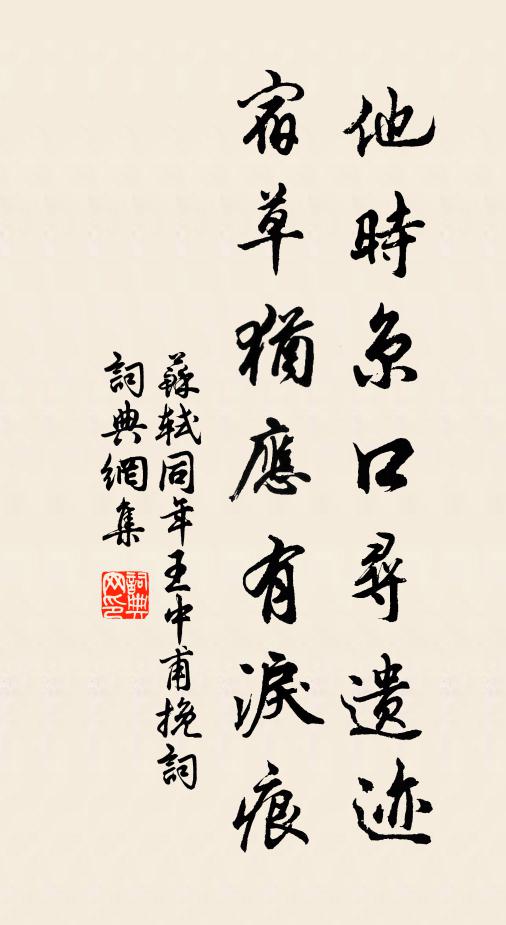 他時京口尋遺迹
宿草猶應有淚痕
蘇軾同年王中甫挽詞
詞典網集
詞典
网印